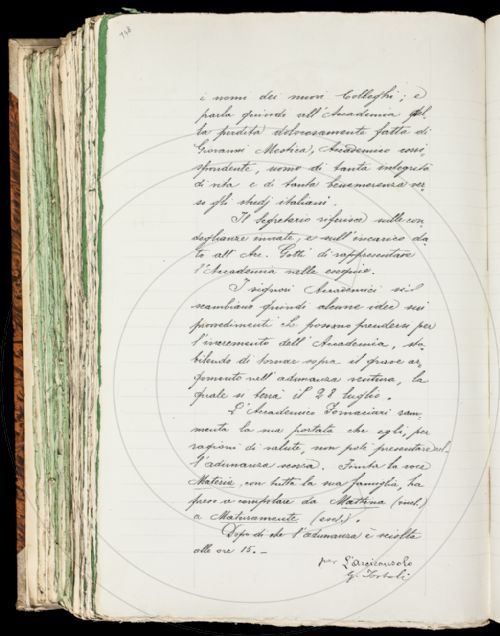 748
i nomi dei nuovi Colleghi; e
parla quindi all'Accademia del
la perdita dolorosamente fatta di
Giovanni Mestica, Accademico corri-
spondente, uomo di tanta integrità
di vita e di tanta benemerenza ver-
so gli studj italiani.
Il Segretario riferisce sulle con-
doglianze inviate, e sull'incarico da-
to all'Arc. Gotti di rappresentare
l'Accademia nelle esequie.
I signori Accademici si
scambiano quindi alcune idee sui
provvedimenti che possano prendersi per
l'incremento dell'Accademia, sta-
bilendo di tornare sopra il grave ar-
gomento nell'adunanza ventura, la
quale si terrà il 28 luglio.
L'Accademico Fornaciari ram-
menta la sua portata che egli, per
ragioni di salute, non potè presentare nel-
l'adunanza scorsa. Finita la voce
Materia, con tutta la sua famiglia, ha
preso a compilare da Mattina (incl.)
a Maturamente (incl.).
Dopo di che l'adunanza è sciolta
alle ore 15. —
per L'Arciconsolo
G. Tortoli